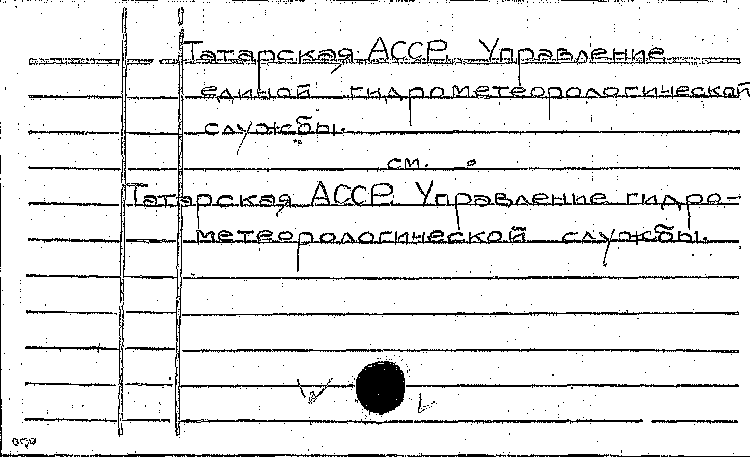 Татарская АССР. Управление
единой гидрометеорологической
службы.
см.
Татарская АССР. Управление гидро-
метеорологической службы.